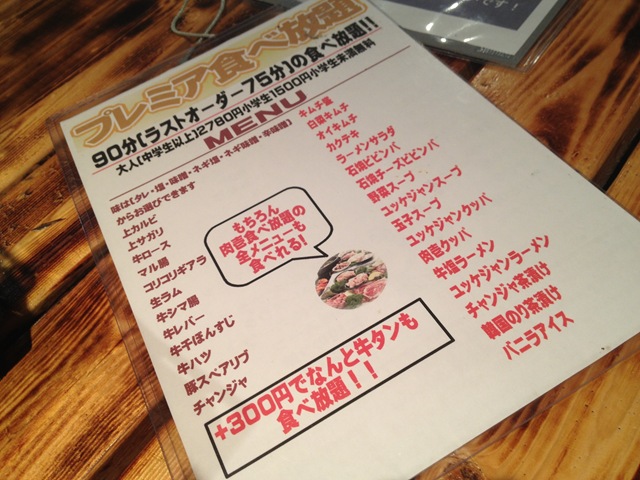 プレミア食べ放題
90分(ラストオーダー75分)の食べ放題!!
大人(中学生以上)2780円小学生1500円小学生未満無料
MENU
味は(タレ・塩・味噌・ネギ塩・ネギ味噌・辛味噌)
からお選びできます
上カルビ
上サガリ
牛ロース
マル腸
コリコリギアラ
生ラム
牛シマ腸
牛レバー
牛干ほんすじ
牛ハツ
豚スペアリブ
チャンジャ
もちろん
肉壱食べ放題の
全メニューも
食べれる!
キムチ盛
白菜キムチ
オイキムチ
カクテキ
ラーメンサラダ
石焼ビビンバ
石焼チーズビビンバ
野菜スープ
ユッケジャンスープ
玉子スープ
ユッケジャンクッパ
肉壱クッパ
牛塩ラーメン
ユッケジャンラーメン
チャンジャ茶漬け
韓国のり茶漬け
バニラアイス
+300円でなんと牛タンも
食べ放題!!
です!